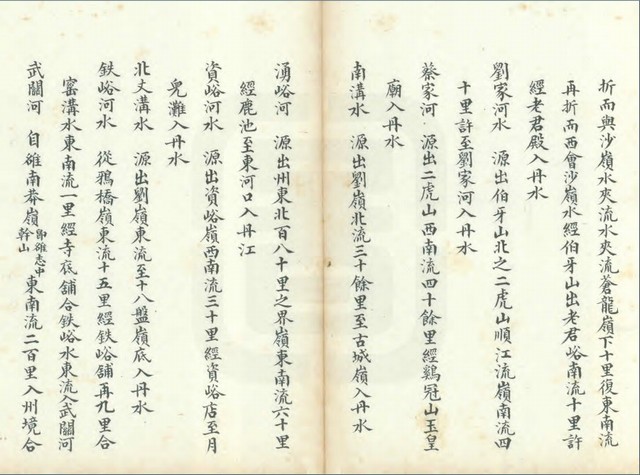 折而與沙嶺水夾流水夾流蒼龍嶺下十里復東南流
再折而西會沙嶺水經伯牙山出老君峪南流十里許
經老君殿入丹水
劉家河水 源出伯牙山北之二虎山順江流嶺南流四
十里許至劉家河入丹水
蔡家河 源出二虎山西南流四十餘里經鷄冠山玉皇
廟入丹水
南溝水 源出劉嶺北流三十餘里至古城嶺入丹水
湧峪河 源出州東北百八十里之界嶺東南流六十里
經鹿池至東河口入丹江
資峪河水 源出資峪嶺西南流三十里經資峪店至月
兒灘入丹水
北丈溝水 源出劉嶺東流至十八盤嶺底入丹水
鉄峪河水 從鴉橋嶺東流十五里經鉄峪舖再九里合
窰溝水東南流一里經寺底舖合鉄峪水東流入武關河
武關河 自雒南莽嶺卽雒志中幹山東南流二百里入州境合